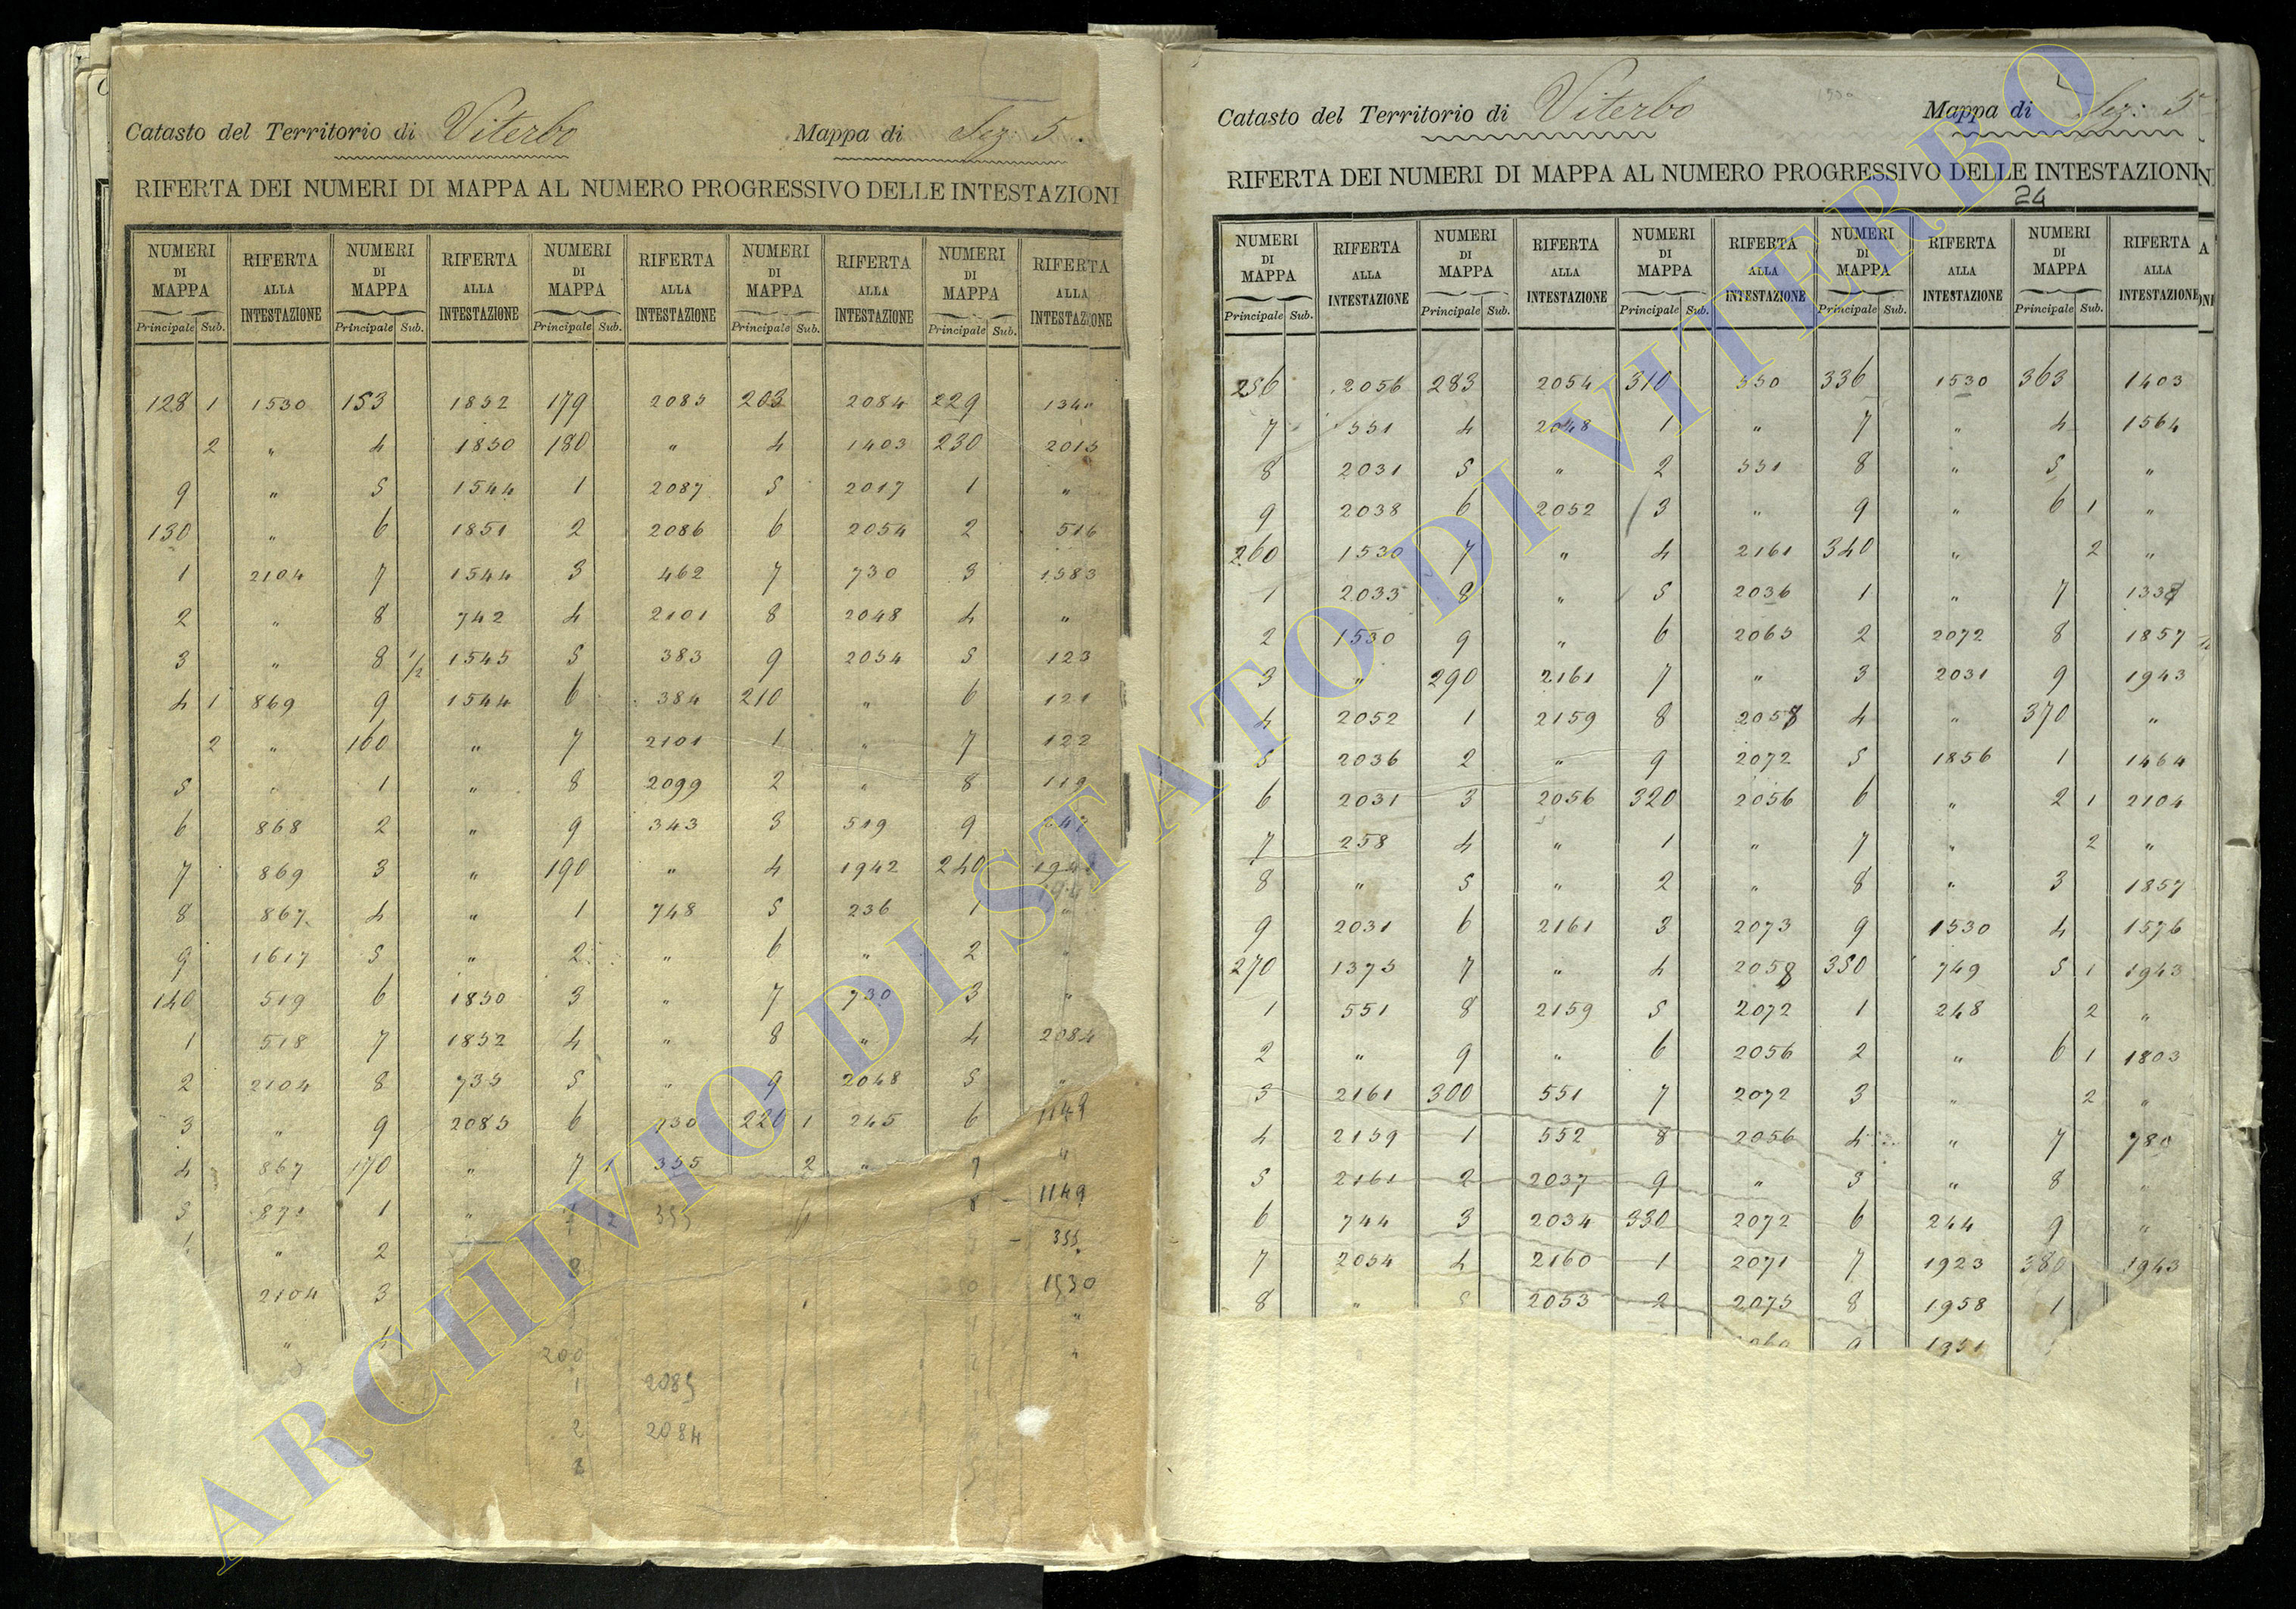 Catasto del Territorio di Viterbo Mappa di Sez: 5.
RIFERTA DEI NUMERI DI MAPPA AL NUMERO PROGRESSIVO DELLE INTESTAZIONI
NUMERI DI MAPPA RIFERTA ALLA INTESTAZIONE NUMERI DI MAPPA RIFERTA ALLA INTESTAZIONE NUMERI DI MAPPA RIFERTA ALLA INTESTAZIONE NUMERI DI MAPPA RIFERTA ALLA INTESTAZIONE NUMERI DI MAPPA RIFERTA ALLA INTESTAZIONE
Principale Sub. Principale Sub. Principale Sub. Principale Sub. Principale Sub.
128 1 1530 153 1852 179 2085 203 2084 229
2 " 4 1850 180 " 4 1403 230 2015
9 " 5 1544 1 2087 5 2017 1 "
130 " 6 1851 2 2086 6 2054 2 516
1 2104 7 1544 3 462 7 730 3 1583
2 " 8 742 4 2101 8 2048 4 "
3 " 8 1/2 1545 5 383 9 2054 5 123
4 1 869 9 1544 6 384 210 " 6 121
2 " 160 " 7 2101 1 " 7 122
5 " 1 " 8 2099 2 " 8 119
6 868 2 " 9 343 3 519 9
7 869 3 " 190 " 4 1942 240
8 867 4 " 1 748 5 236 1 "
9 1617 5 " 2 " 6 " 2 "
140 519 6 1850 3 " 7 730 3 "
1 518 7 1852 4 " 8 " 4 2084
2 2104 8 735 5 " 9 2048 5 "
3 " 9 2085 6 730 220 1 245 6 1149
4 867 170 " 7 1 355 2 " 7 "
5 871 1 " 7 2 355 8 - 1149
" 2 8 - 355
2104 3 1530
" 4 "
200 "
1 2085
2 2084
3
Catasto del Territorio di Viterbo Mappa di Sez: 5
RIFERTA DEI NUMERI DI MAPPA AL NUMERO PROGRESSIVO DELLE INTESTAZIONI
24
NUMERI DI MAPPA RIFERTA ALLA INTESTAZIONE NUMERI DI MAPPA RIFERTA ALLA INTESTAZIONE NUMERI DI MAPPA RIFERTA ALLA INTESTAZIONE NUMERI DI MAPPA RIFERTA ALLA INTESTAZIONE NUMERI DI MAPPA RIFERTA ALLA INTESTAZIONE
Principale Sub. Principale Sub. Principale Sub. Principale Sub. Principale Sub.
256 2056 283 2054 310 550 336 1530 363 1403
7 551 4 2048 1 " 7 " 4 1564
8 2031 5 " 2 551 8 " 5 "
9 2038 6 2052 3 " 9 " 6 1 "
260 1530 7 " 4 2161 340 " 2 "
1 2033 8 " 5 2036 1 " 7
2 1530 9 " 6 2065 2 2072 8 1857
3 " 290 2161 7 " 3 2031 9 1943
4 2052 1 2159 8 2058 4 " 370 "
5 2036 2 " 9 2072 5 1856 1 1464
6 2031 3 2056 320 2056 6 " 2 1 2104
7 258 4 " 1 " 7 " 2 "
8 " 5 " 2 " 8 " 3 1857
9 2031 6 2161 3 2073 9 1530 4 1576
270 1375 7 " 4 2058 350 749 5 1 1943
1 551 8 2159 5 2072 1 248 2 "
2 " 9 " 6 2056 2 " 6 1 1803
3 2161 300 551 7 2072 3 " 2 "
4 2159 1 552 8 2056 4 " 7 780
5 2161 2 2037 9 " 5 " 8 "
6 744 3 2034 330 2072 6 244 9 "
7 2054 4 2160 1 2071 7 1923 380 1943
8 " 5 2053 2 2075 8 1958 1
9 1351
ARCHIVIO DI STATO DI VITERBO